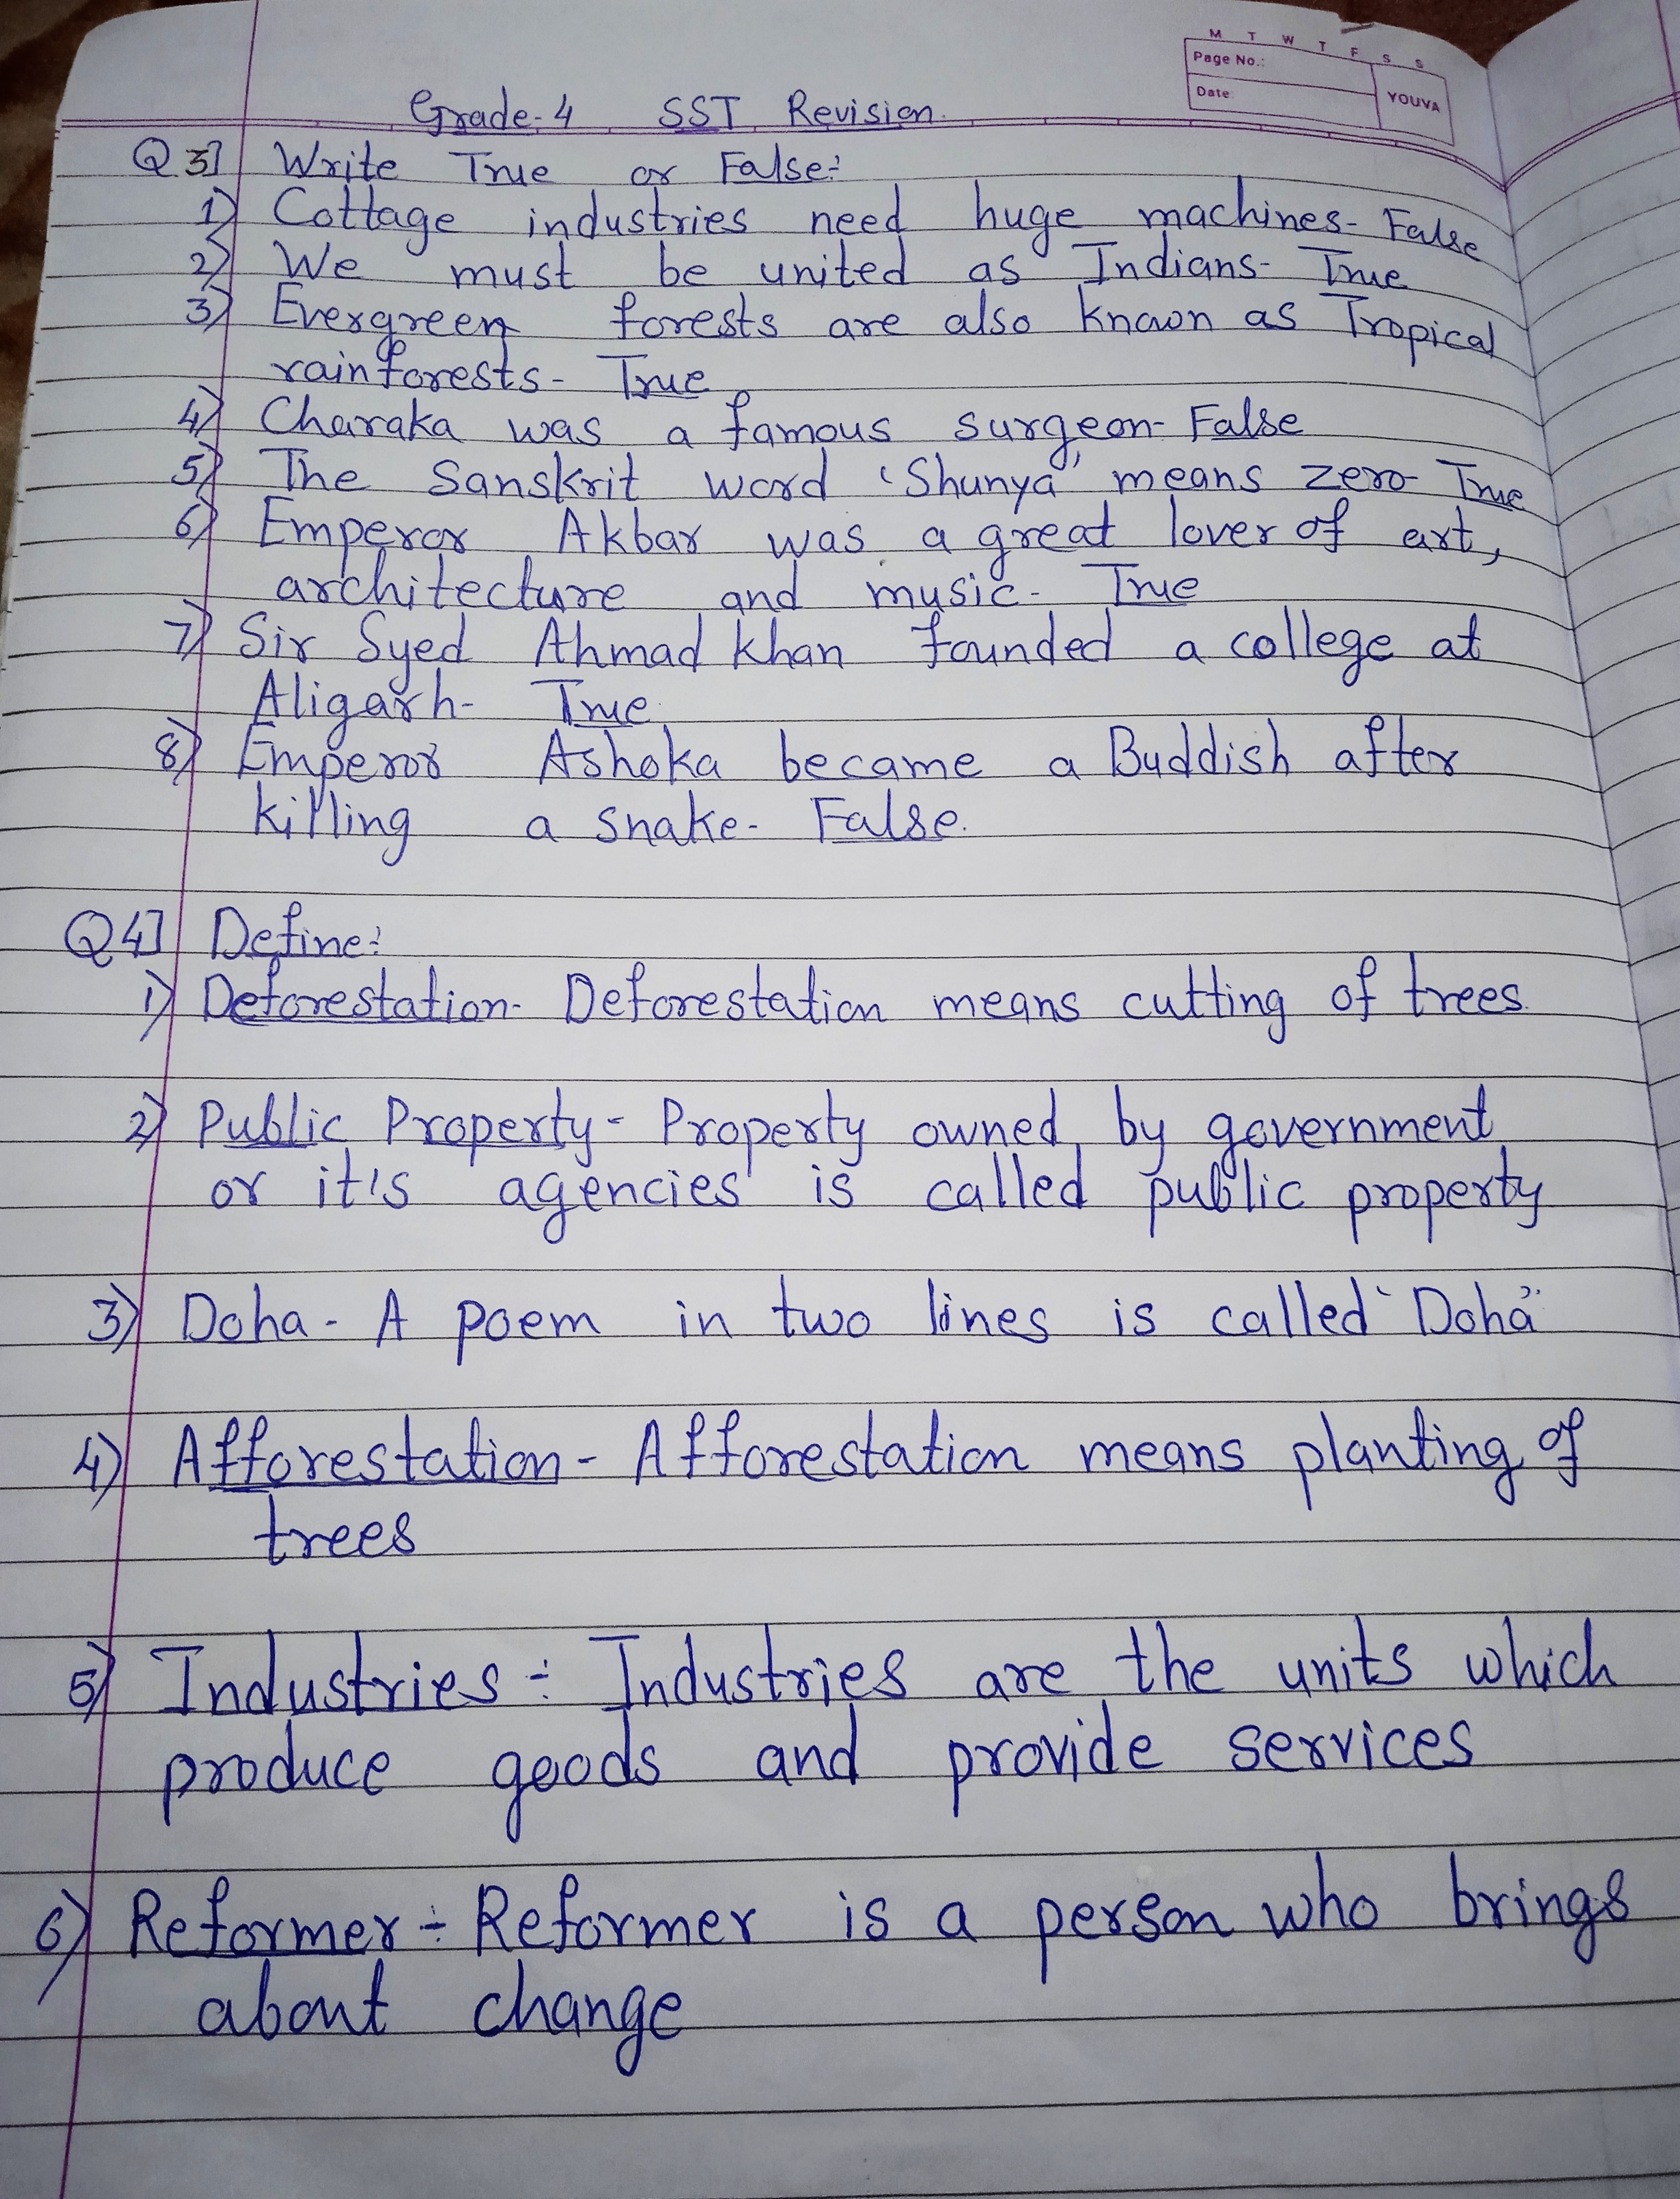 M T W T F S S
Page No.:
Date:
YOUVA
Grade-4 SST Revision.
Q 3] Write True or False:
1) Cottage industries need huge machines- False
2) We must be united as Indians- True
3) Evergreen forests are also known as Tropical
rainforests- True
4) Charaka was a famous surgeon- False
5) The Sanskrit word 'Shunya' means zero- True
6) Emperor Akbar was a great lover of art,
architecture and music- True
7) Sir Syed Ahmad Khan founded a college at
Aligarh- True
8) Emperor Ashoka became a Buddish after
killing a snake- False.
Q4] Define:
1) Deforestation- Deforestation means cutting of trees.
2) Public Property- Property owned by government
or it's agencies is called public property
3) Doha- A poem in two lines is called "Doha"
4) Afforestation- Afforestation means planting of
trees
5) Industries÷ Industries are the units which
produce goods and provide services
6) Reformer÷ Reformer is a person who brings
about change